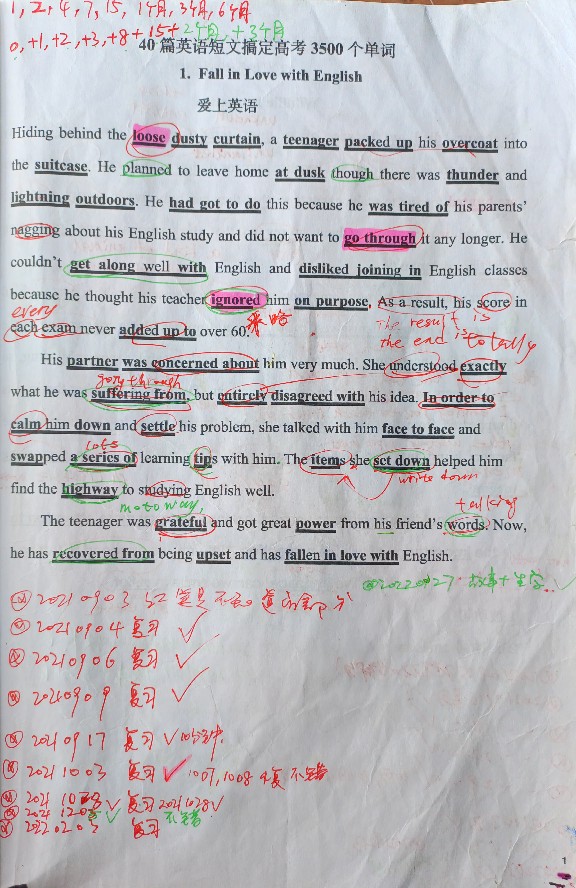 1, 2, 4, 7, 15, 1个月, 3个月, 6个月
0, +1, +2, +3, +8 +15+ 2个月, +3个月
40 篇英语短文搞定高考 3500 个单词
1. Fall in Love with English
爱上英语
Hiding behind the loose dusty curtain, a teenager packed up his overcoat into
the suitcase. He planned to leave home at dusk though there was thunder and
lightning outdoors. He had got to do this because he was tired of his parents'
nagging about his English study and did not want to go through it any longer. He
couldn't get along well with English and disliked joining in English classes
because he thought his teacher ignored him on purpose. As a result, his score in
every
each exam never added up to over 60.
The result is
the end is totally
His partner was concerned about him very much. She understood exactly
going through
what he was suffering from, but entirely disagreed with his idea. In order to
calm him down and settle his problem, she talked with him face to face and
lots
swapped a series of learning tips with him. The items she set down helped him
write down
find the highway to studying English well.
motoway
talking
The teenager was grateful and got great power from his friend's words. Now,
he has recovered from being upset and has fallen in love with English.
20220427 故事+生字
20210903
20210904 复习
20210906 复习
20210909 复习
20210917 复习 10分钟
20211003 复习 1007, 1008 不错
复习 20211028
不错
20220203 复习
1